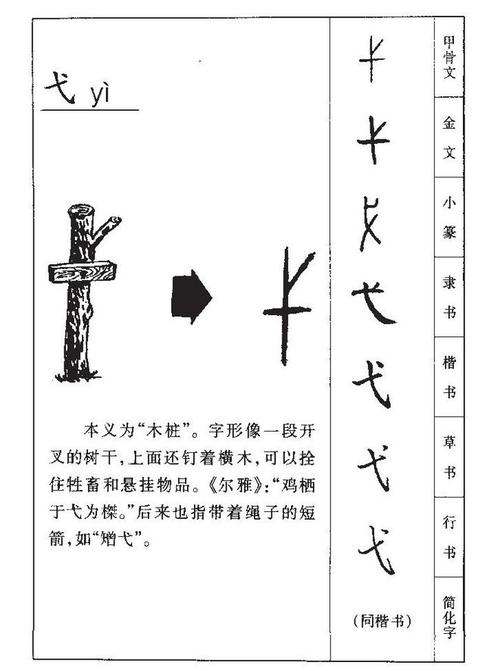 弋 yì
本义为“木桩”。字形像一段开
叉的树干，上面还钉着横木，可以拴
住牲畜和悬挂物品。《尔雅》：“鸡栖
于弋为榤。”后来也指带着绳子的短
箭，如“矰弋”。
甲骨文
金文
小篆
隶书
楷书
草书
行书
简化字
弋
弋
弋
弋
弋
弋
弋
（同楷书）